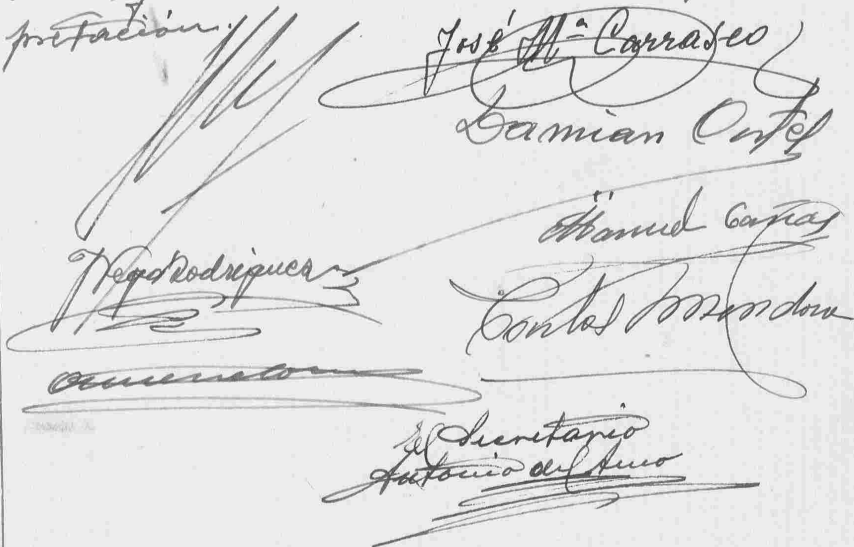 pretación.
José Mª Carrasco
Damian
Manuel Cañas
Rodriguez
Carlos Mendoza
El Secretario
Antonio del Amo